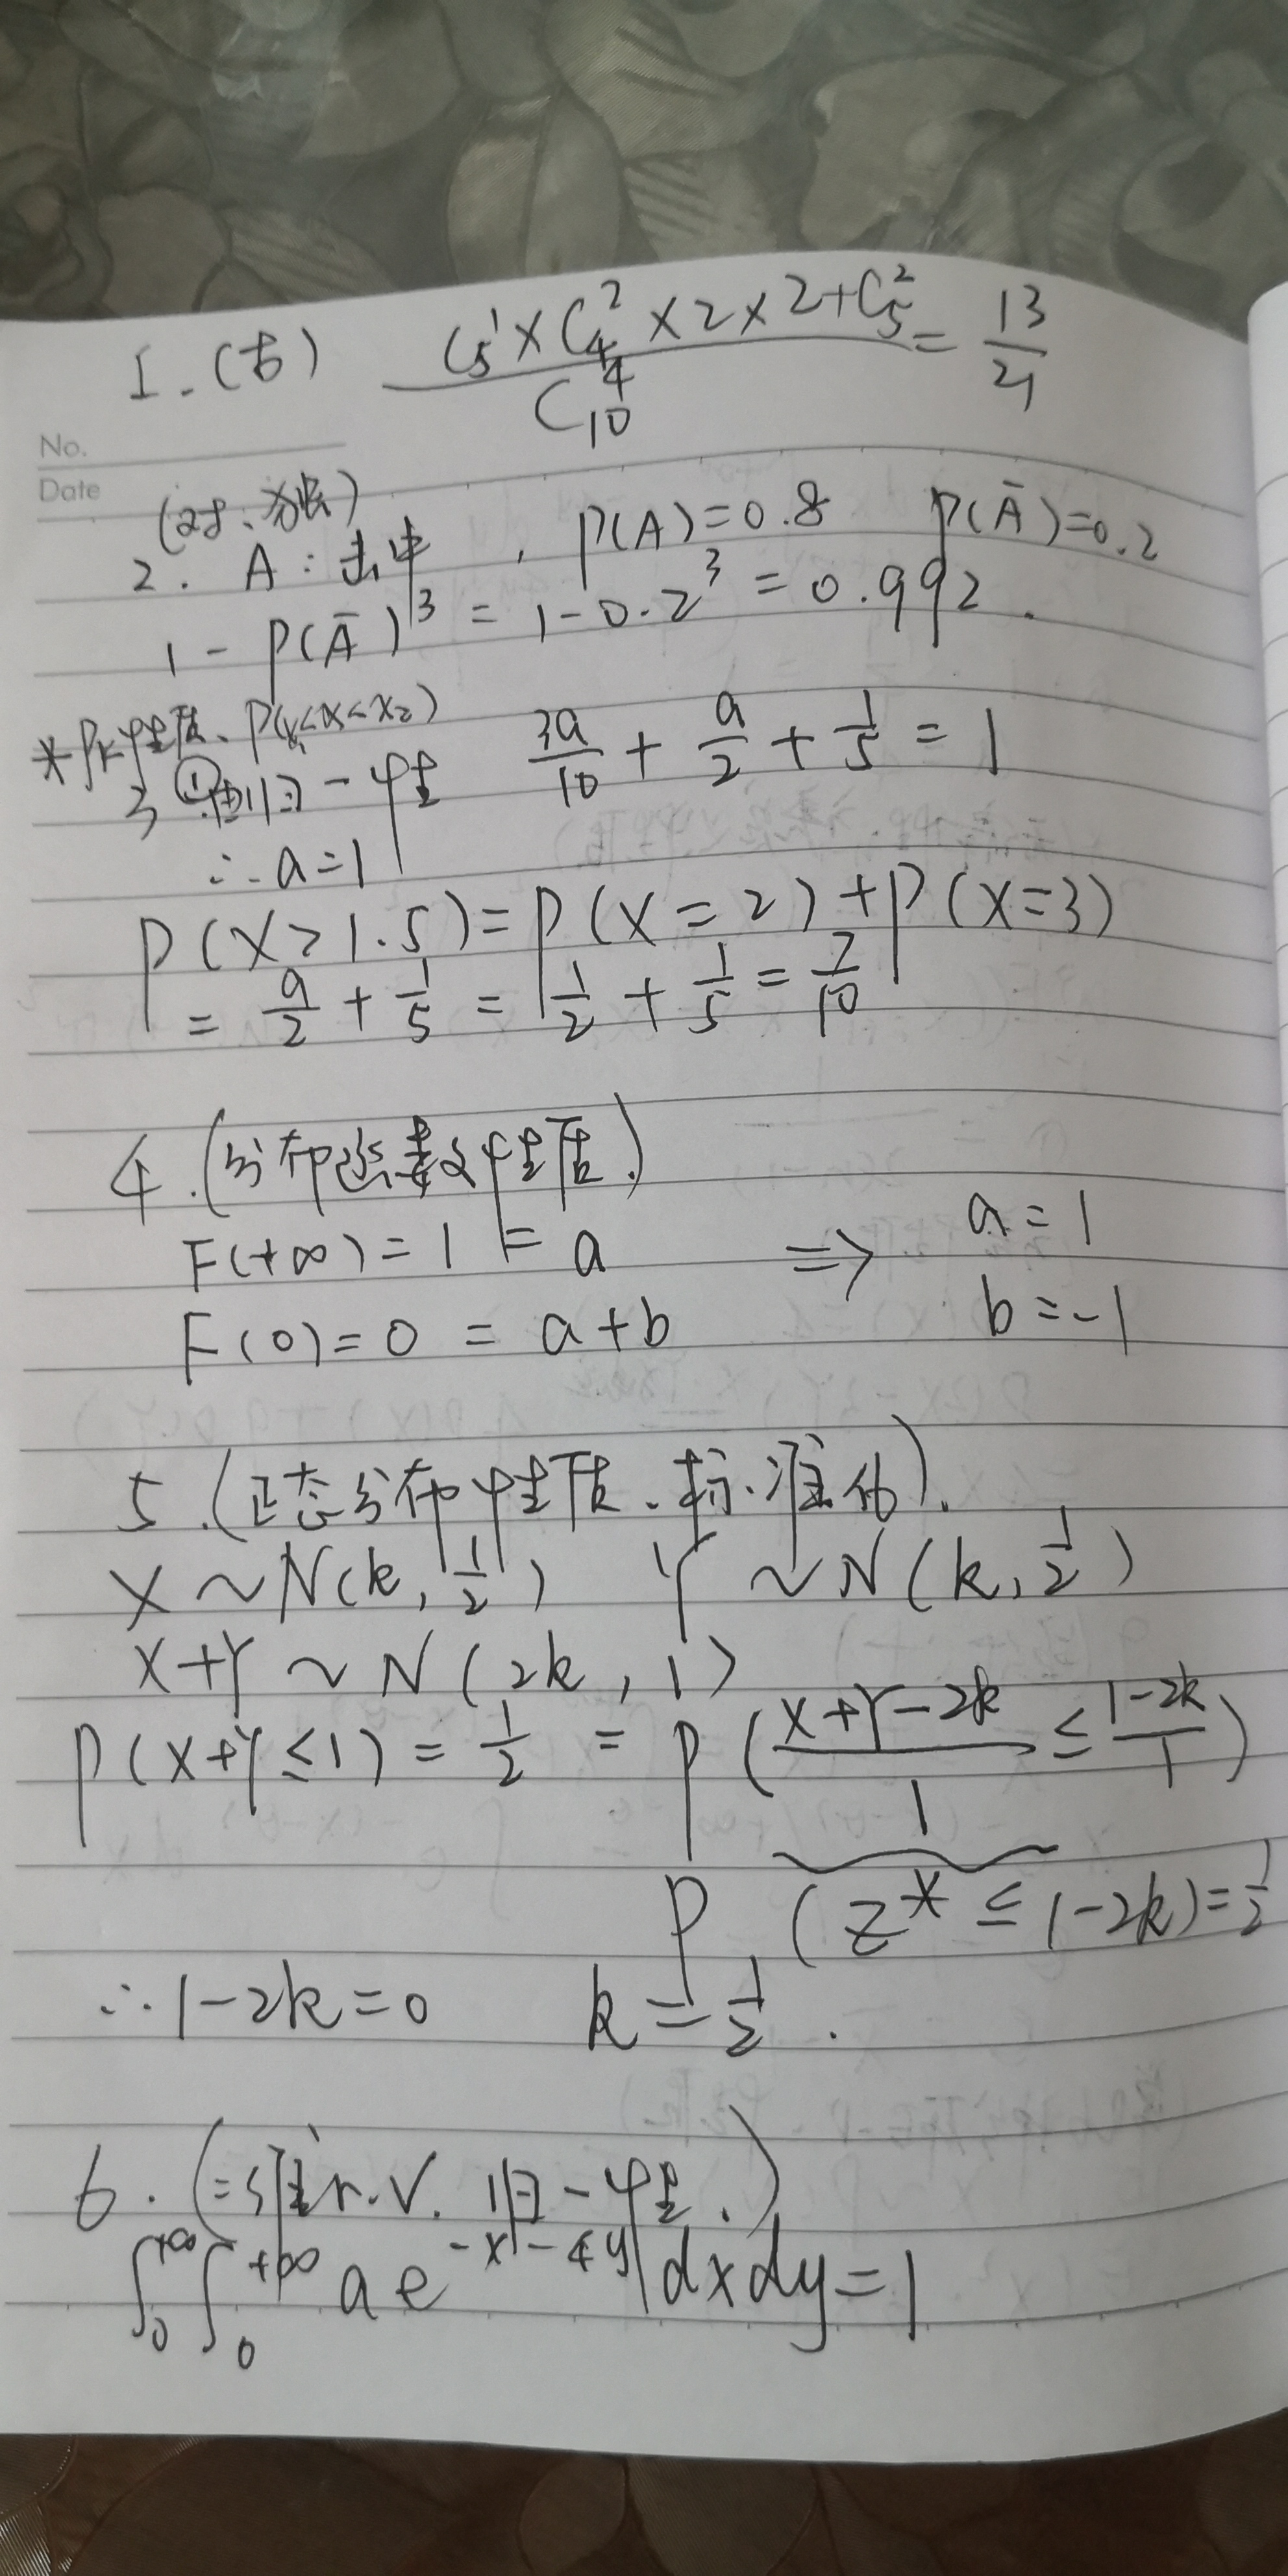 1.(古) (C₅¹×C₄²×2×2+C₅²)/C₁₀⁴ = 13/21
No.
Date
2. A:击中, P(A)=0.8 P(Ā)=0.2
1-P(Ā)³ = 1-0.2³ = 0.992.
*Pk性质、P(x₁<x<x₂)
3 ① 归一性 3a/10 + a/2 + 1/5 = 1
∴a=1
P(X>1.5)=P(X=2)+P(X=3)
= a/2 + 1/5 = 1/2 + 1/5 = 7/10
4.(分布函数性质.)
F(+∞)=1=a => a=1
F(0)=0=a+b b=-1
5.(正态分布性质、标准化).
X~N(k,1/2) Y~N(k,1/2)
X+Y~N(2k,1)
P(X+Y≤1)=1/2=P((X+Y-2k)/1≤(1-2k)/1)
P(Z*≤1-2k)=1/2
∴1-2k=0 k=1/2.
6.(二维r.v.归一性.)
∫₀^{+∞}∫₀^{+∞} ae^{-x-4y}dxdy=1